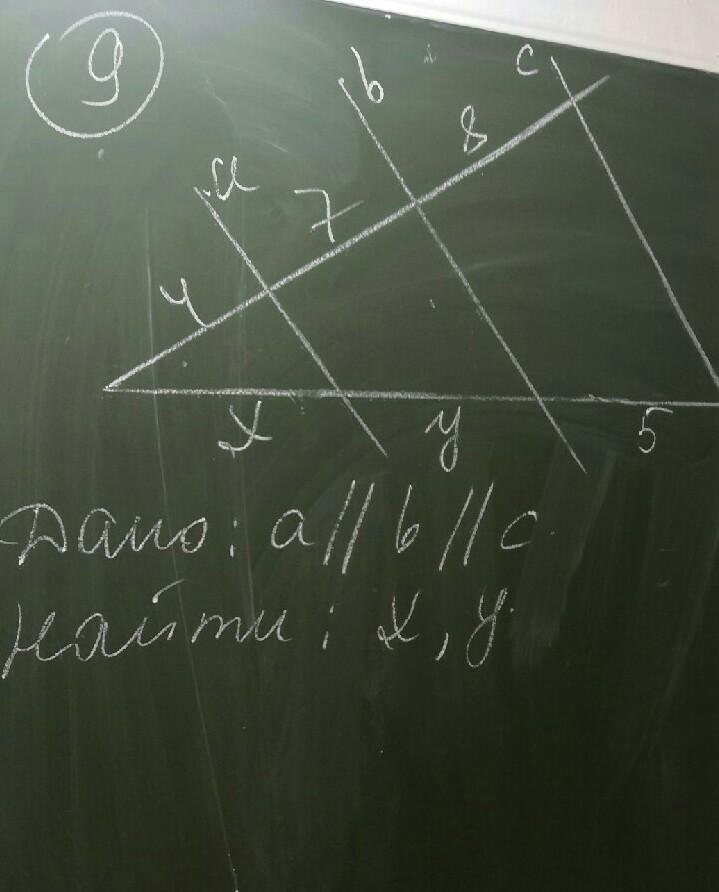 9
a b c
4 7 8
x y 5
Дано: a || b || c.
Найти: x, y.